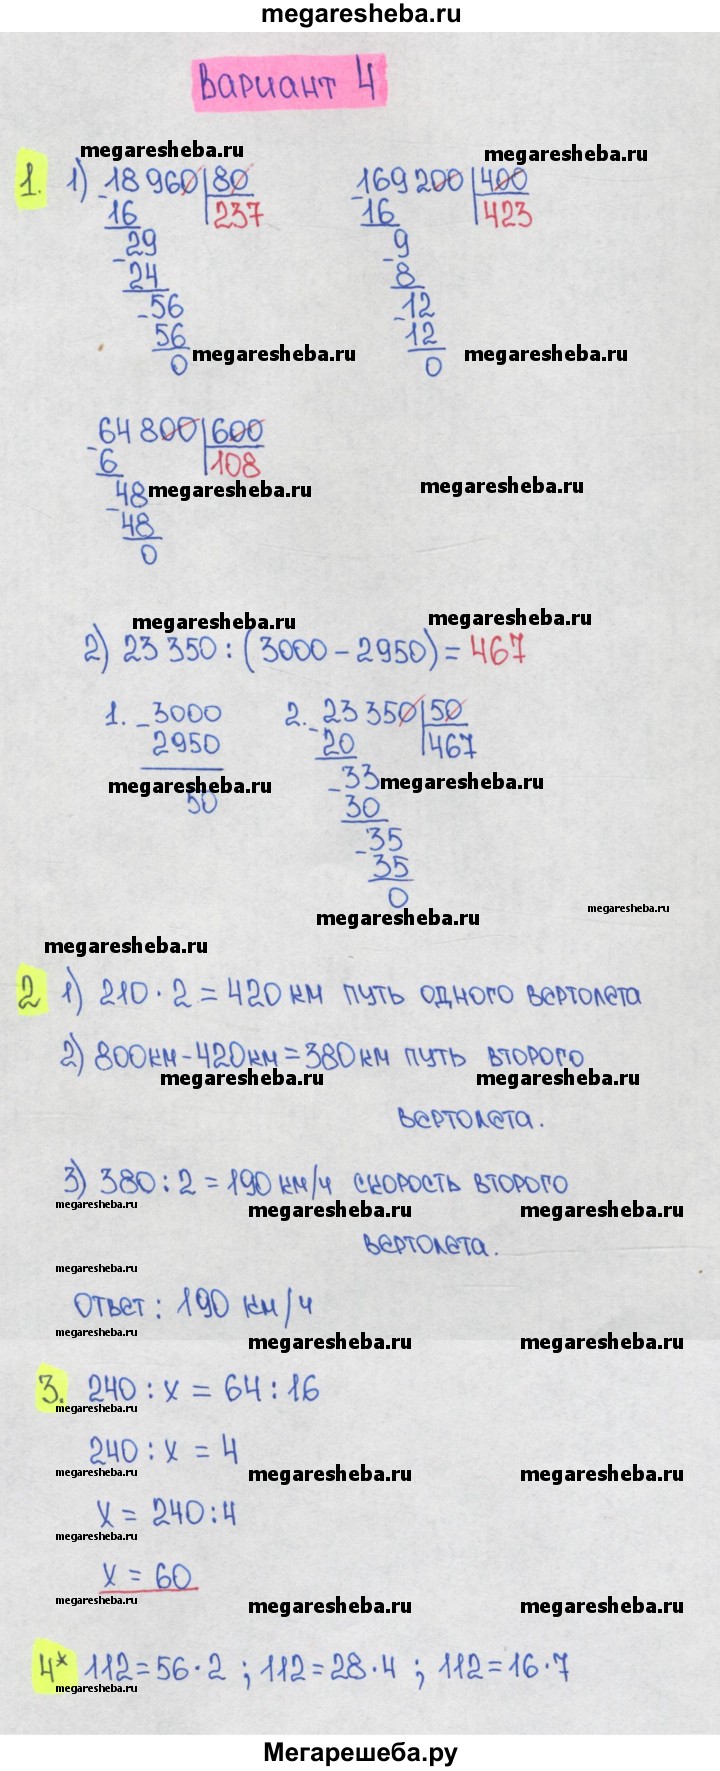 megaresheba.ru
Вариант 4
megaresheba.ru
megaresheba.ru
1. 1) 18 960 | 80
169 200 | 400
- 16 | 237
- 16 | 423
29
9
- 24
- 8
56
12
- 56
- 12
0
0
megaresheba.ru
megaresheba.ru
64 800 | 600
- 6 | 108
48
- 48
0
megaresheba.ru
megaresheba.ru
megaresheba.ru
megaresheba.ru
2) 23 350 : (3000 - 2950) = 467
1. - 3000
2950
50
megaresheba.ru
2. 23 350 | 50
- 20 | 467
33
- 30
35
- 35
0
megaresheba.ru
megaresheba.ru
megaresheba.ru
megaresheba.ru
2 1) 210 · 2 = 420 км путь одного вертолета
2) 800км - 420км = 380км путь второго
megaresheba.ru
megaresheba.ru
вертолета.
3) 380 : 2 = 190 км/ч скорость второго
megaresheba.ru
megaresheba.ru
megaresheba.ru
вертолета.
megaresheba.ru
Ответ : 190 км/ч
megaresheba.ru
megaresheba.ru
megaresheba.ru
3. 240 : x = 64 : 16
megaresheba.ru
240 : x = 4
megaresheba.ru
megaresheba.ru
megaresheba.ru
x = 240:4
megaresheba.ru
x = 60
megaresheba.ru
megaresheba.ru
megaresheba.ru
4* 112 = 56 · 2 ; 112 = 28 · 4 ; 112 = 16 · 7
megaresheba.ru
Мегарешеба.ру